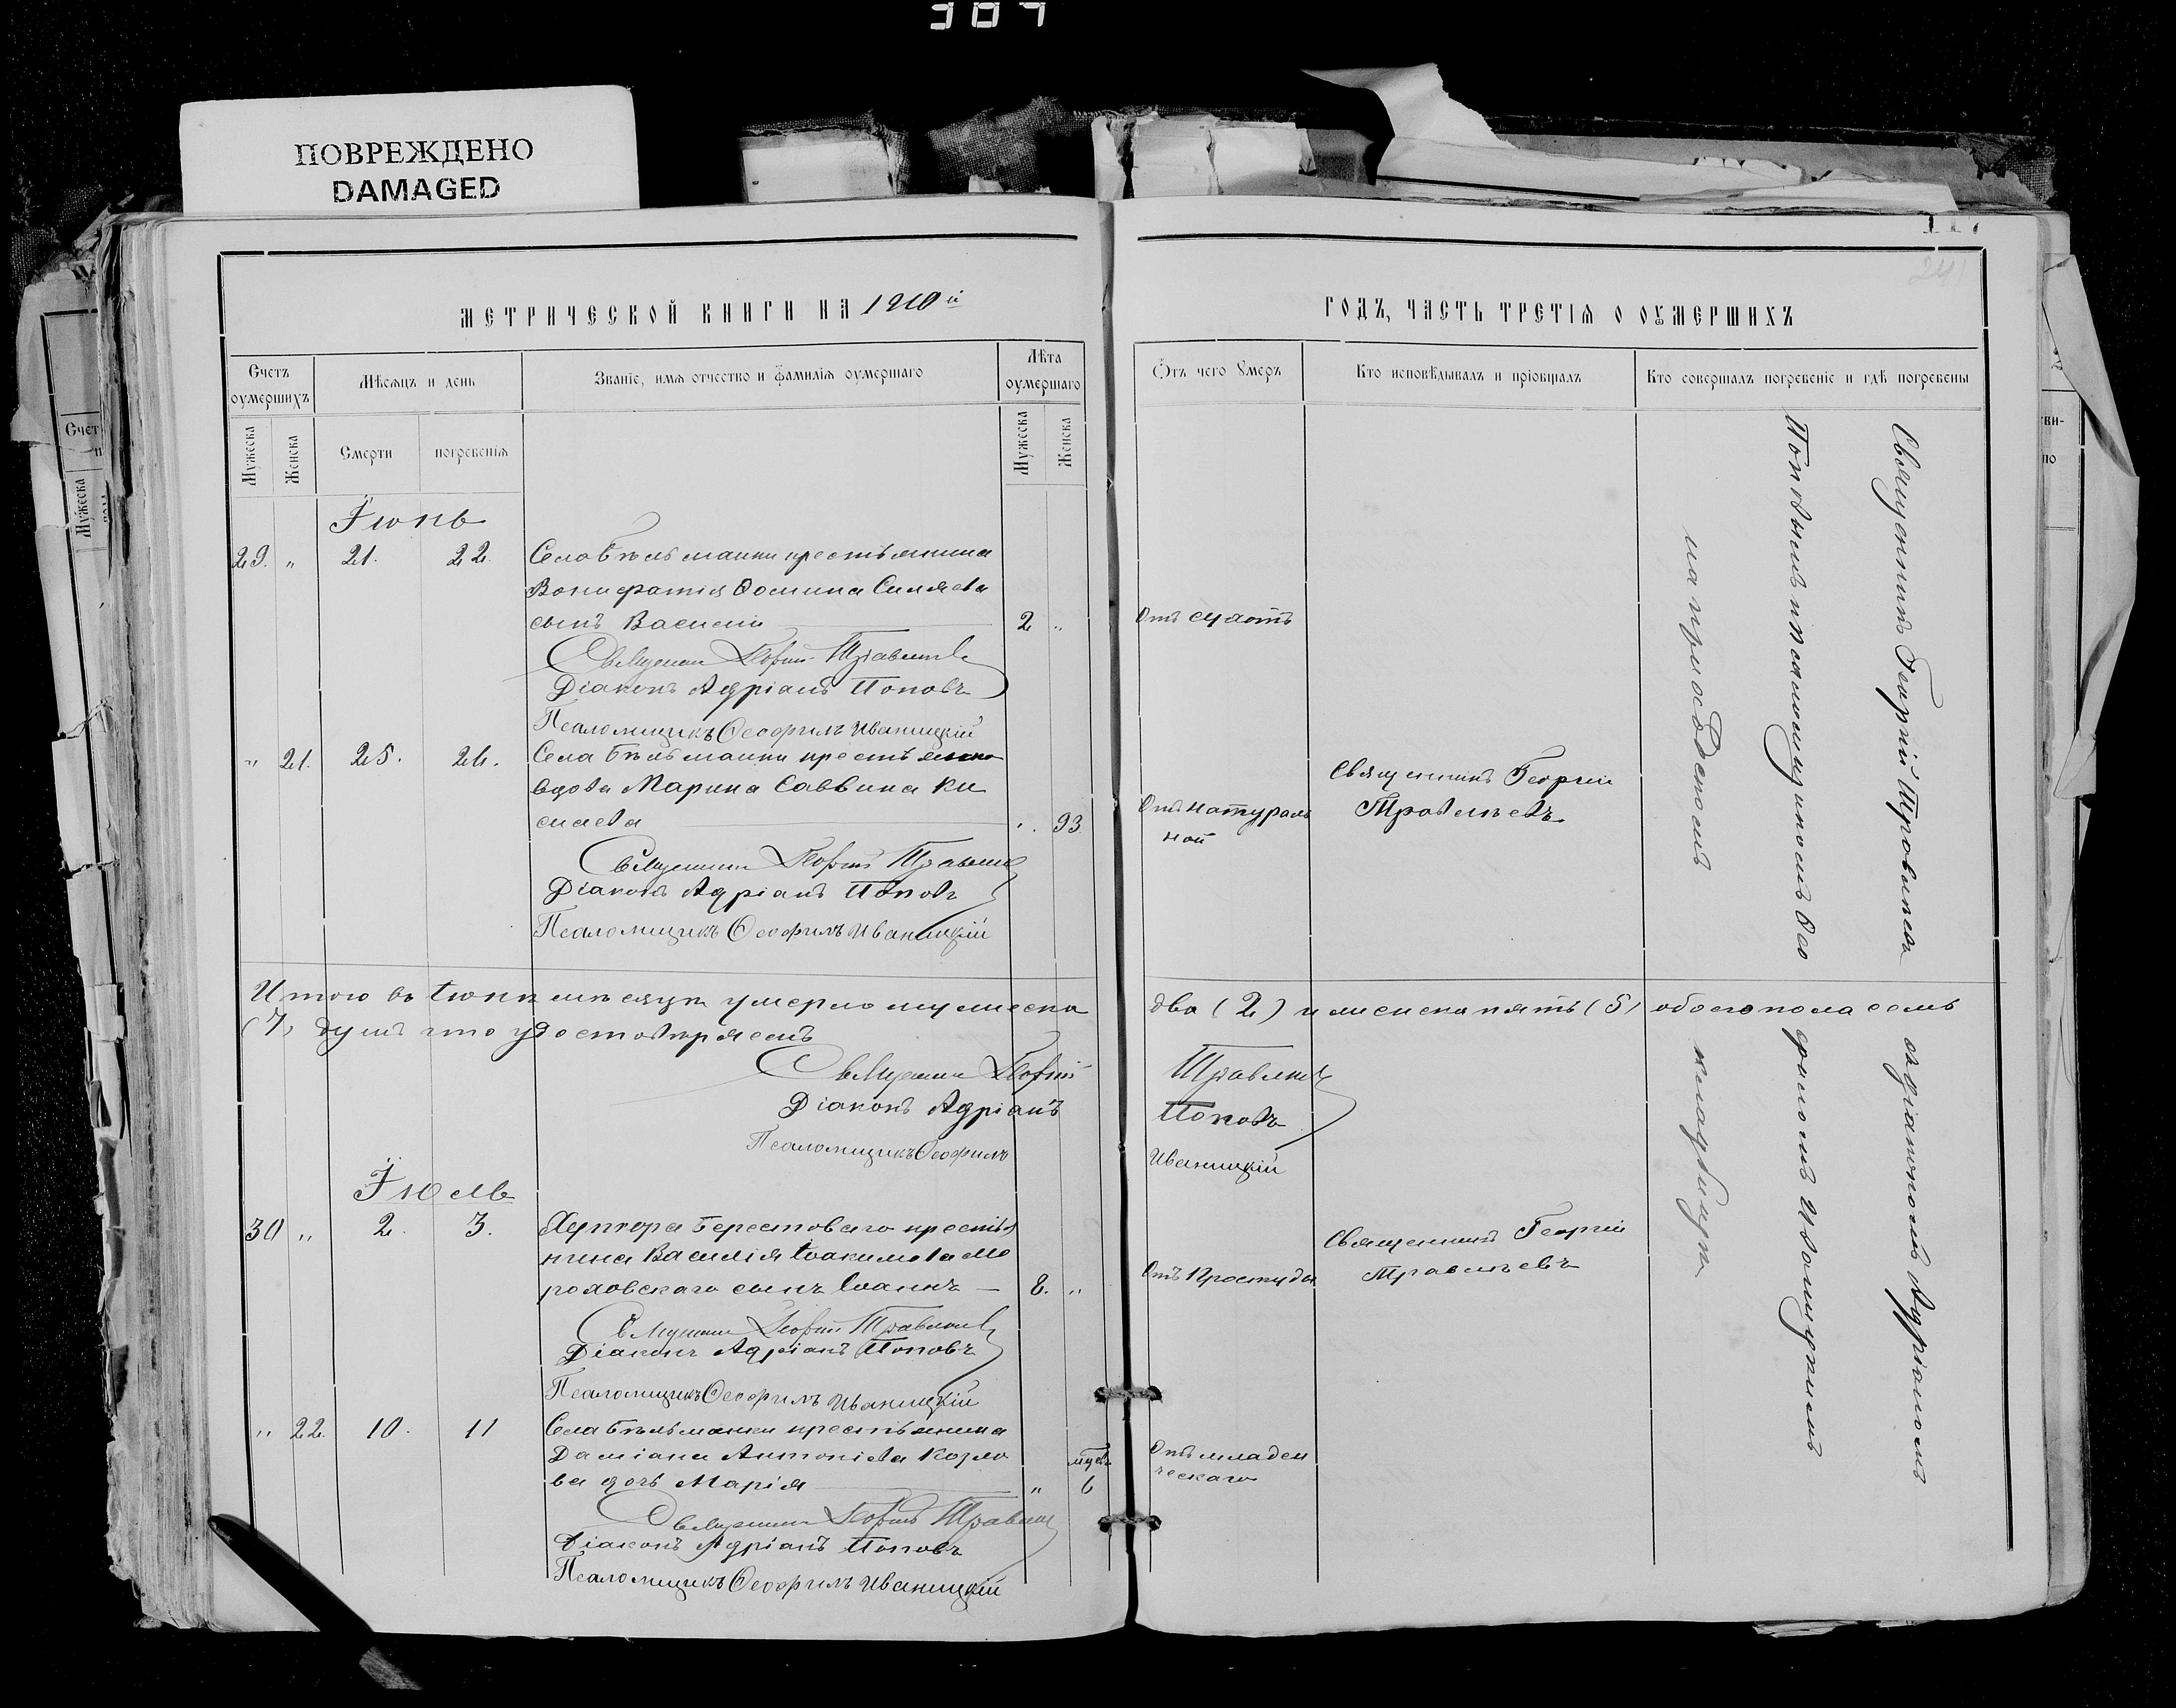 307
ПОВРЕЖДЕНО
DAMAGED
241
МЕТРИЧЕСКОЙ КНИГИ НА 1910й
ГОДЪ, ЧАСТЬ ТРЕТІЯ О ОУМЕРШИХЪ
Счетъ оумершихъ
Мѣсяцъ и день
Званіе, имя отчество и фамилія оумершаго
Лѣта оумершаго
Отъ чего умеръ
Кто исповѣдывалъ и пріобщалъ
Кто совершалъ погребеніе и гдѣ погребены
Мужеска
Женска
Смерти
погребенія
Мужеска
Женска
Іюнь
29. " 21. 22. Села Бѣльманки крестьянина
Вонифатія Ѳомина Силяева
сынъ Василій 2 " Отъ
Священникъ Георгій Травлѣевъ
Діаконъ Адріанъ Поповъ
Псаломщикъ Ѳеофилъ Иваницкій
" 21. 25. 26. Села Бѣльманки крестьянка
вдова Марина Саввина Ки
силева " 93. Отъ натураль
ной
Священникъ Георгій
Травлѣевъ
Священникъ Георгій Травлѣевъ
Діаконъ Адріанъ Поповъ
Псаломщикъ Ѳеофилъ Иваницкій
Священникъ Георгій Травлѣевъ
Поповымъ и псаломщикомъ Ѳео
на приходскомъ
Итого въ Іюнѣ мѣсяцѣ умерло мужеска два (2) и женска пять (5) обоего пола семь
(7) душъ что удостовѣряемъ
Священникъ Георгій Травлѣевъ
Діаконъ Адріанъ Поповъ
Псаломщикъ Ѳеофилъ Иваницкій
Іюль
30 " 2. 3. Хутора Берестоваго крестья
нина Василія Іоакимова Мо
роховскаго сынъ Іоаннъ 8. " Отъ простуды
Священникъ Георгій
Травлѣевъ
Священникъ Георгій Травлѣевъ
Діаконъ Адріанъ Поповъ
Псаломщикъ Ѳеофилъ Иваницкій
" 22. 10. 11 Села Бѣльманки крестьянина
Даміана Антоніева Козло
ва дочь Марія " мцев 6 Отъ младен
ческаго
Священникъ Георгій Травлѣевъ
Діаконъ Адріанъ Поповъ
Псаломщикъ Ѳеофилъ Иваницкій
съ діакономъ Адріаномъ
филомъ Иваницкимъ
кладбищѣ